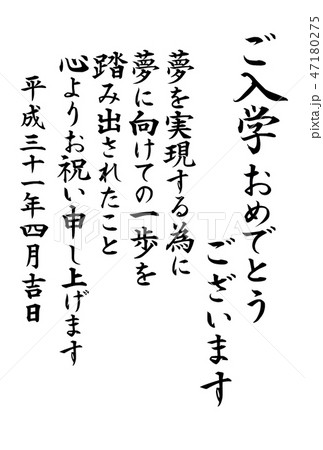 ご入学おめでとう
ございます
夢を実現する為に
夢に向けての一歩を
踏み出されたこと
心よりお祝い申し上げます
平成三十一年四月吉日
pixta.jp - 47180275